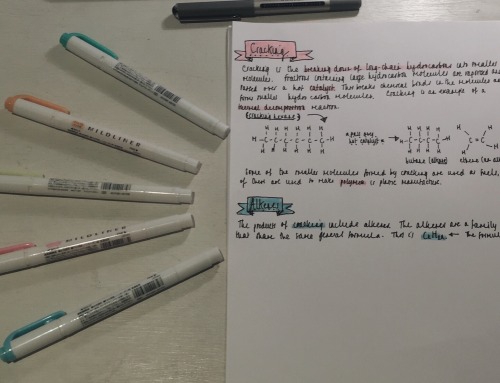 Cracking
Cracking is the breaking down of long-chain hydrocarbons into smaller
molecules. Fractions containing large hydrocarbon molecules are vaporised and
passed over a hot catalyst. This breaks chemical bonds in the molecules and
forms smaller hydrocarbon molecules. Cracking is an example of a
thermal decomposition reaction.
cracking hexane
H H H H H H
H-C-C-C-C-C-C-H
H H H H H H
hot catalyst
H H H H
H-C-C-C-C-H
H H H H
H H
C=C
H H
butane (alkane)
ethene (an
Some of the smaller molecules formed by cracking are used as fuels,
of them are used to make polymers in plastic manufacture.
Alkenes
The products of cracking include alkenes. The alkenes are a family
that share the same general formula. This is CnH2n ← the formula
MILDLINER
MILDLINER